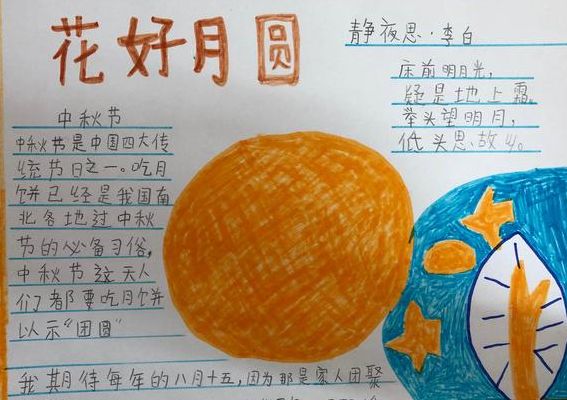 花好月圆
静夜思·李白
床前明月光，
疑是地上霜。
举头望明月，
低头思故乡。
中秋节
中秋节是中国四大传
统节日之一。吃月
饼已经是我国南
北各地过中秋
节的必备习俗，
中秋节这天人
们都要吃月饼
以示“团圆”
我期待每年的八月十五，因为那是家人团聚